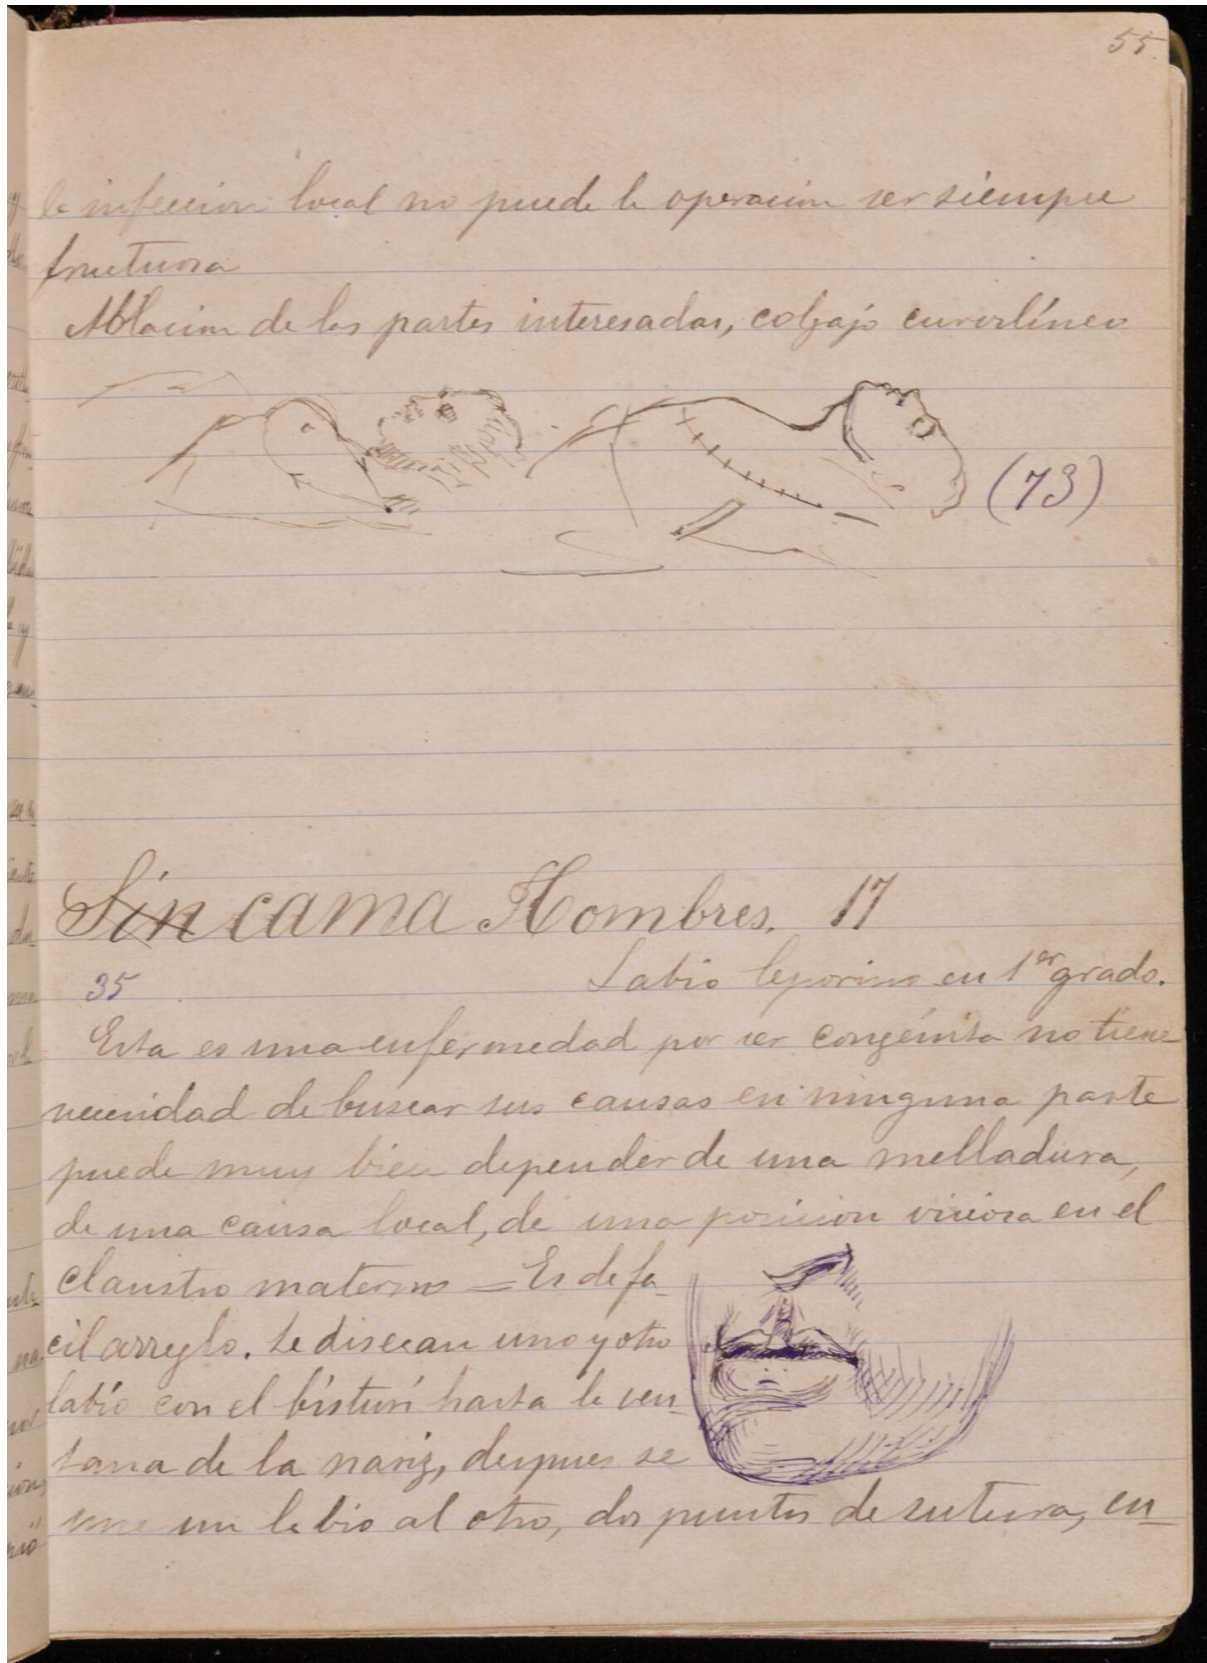 55.
la infeccion local no puede la operacion ser siempre
fructuosa
Ablacion de las partes interesadas, colgajo curvilíneo
(73)
Sin cama Hombres. 17
35
Labio leporino en 1er grado.
Esta es una enfermedad por ser congénita no tiene
necesidad de buscar sus causas en ninguna parte
puede muy bien depender de una melladura,
de una causa local, de una posicion viciosa en el
claustro materno = Es de fa
cil arreglo. Se disecan uno y otro
labio con el bisturí hasta la ven_
tana de la nariz, despues se
une un labio al otro, dos puntos de sutura, en_